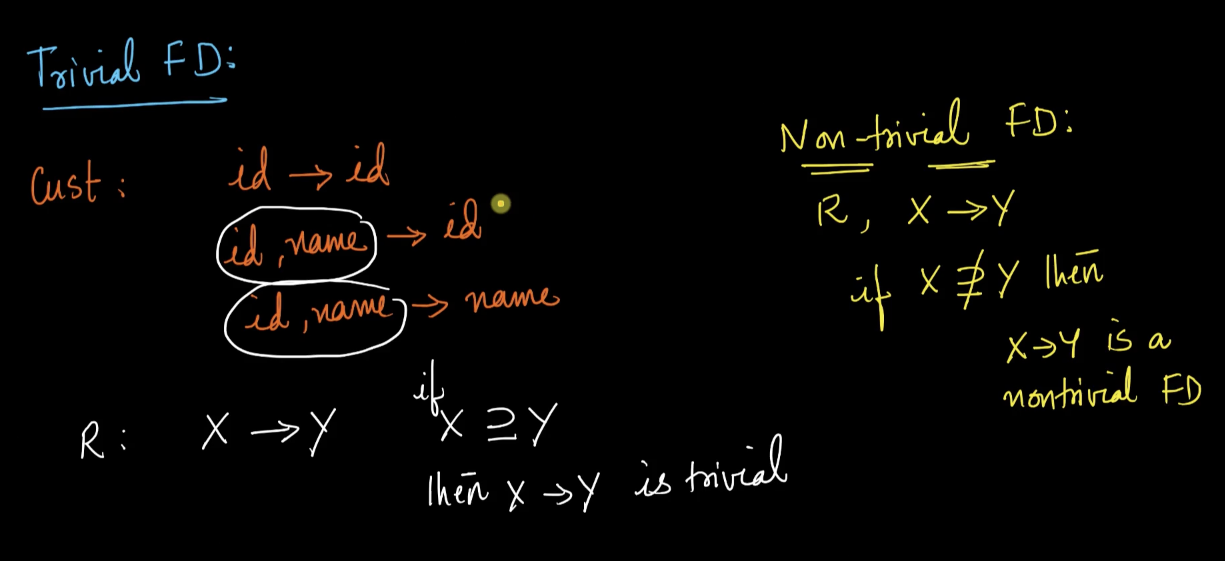 Trivial FD:
Cust: id → id
id, name → id
id, name → name
R: X → Y if X ⊇ Y
then X → Y is trivial
Non-trivial FD:
R, X → Y
if X ⊉ Y then
X → Y is a
nontrivial FD